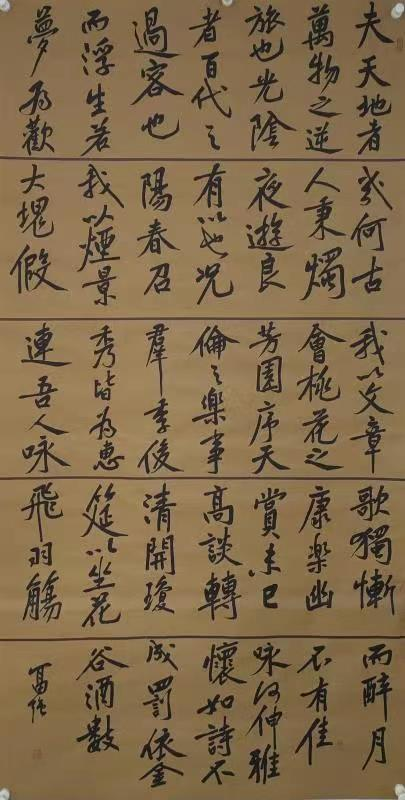 夫天地者
萬物之逆
旅也光陰
者百代之
過客也
而浮生若
夢為歡
幾何古
人秉燭
夜遊良
有以也況
陽春召
我以煙景
大塊假
我以文章
會桃花之
芳園序天
倫之樂事
羣季俊
秀皆為惠
連吾人咏
歌獨慚
康樂幽
賞未已
高談轉
清開瓊
筵以坐花
飛羽觴
而醉月
不有佳
咏何伸雅
懷如詩不
成罰依金
谷酒數